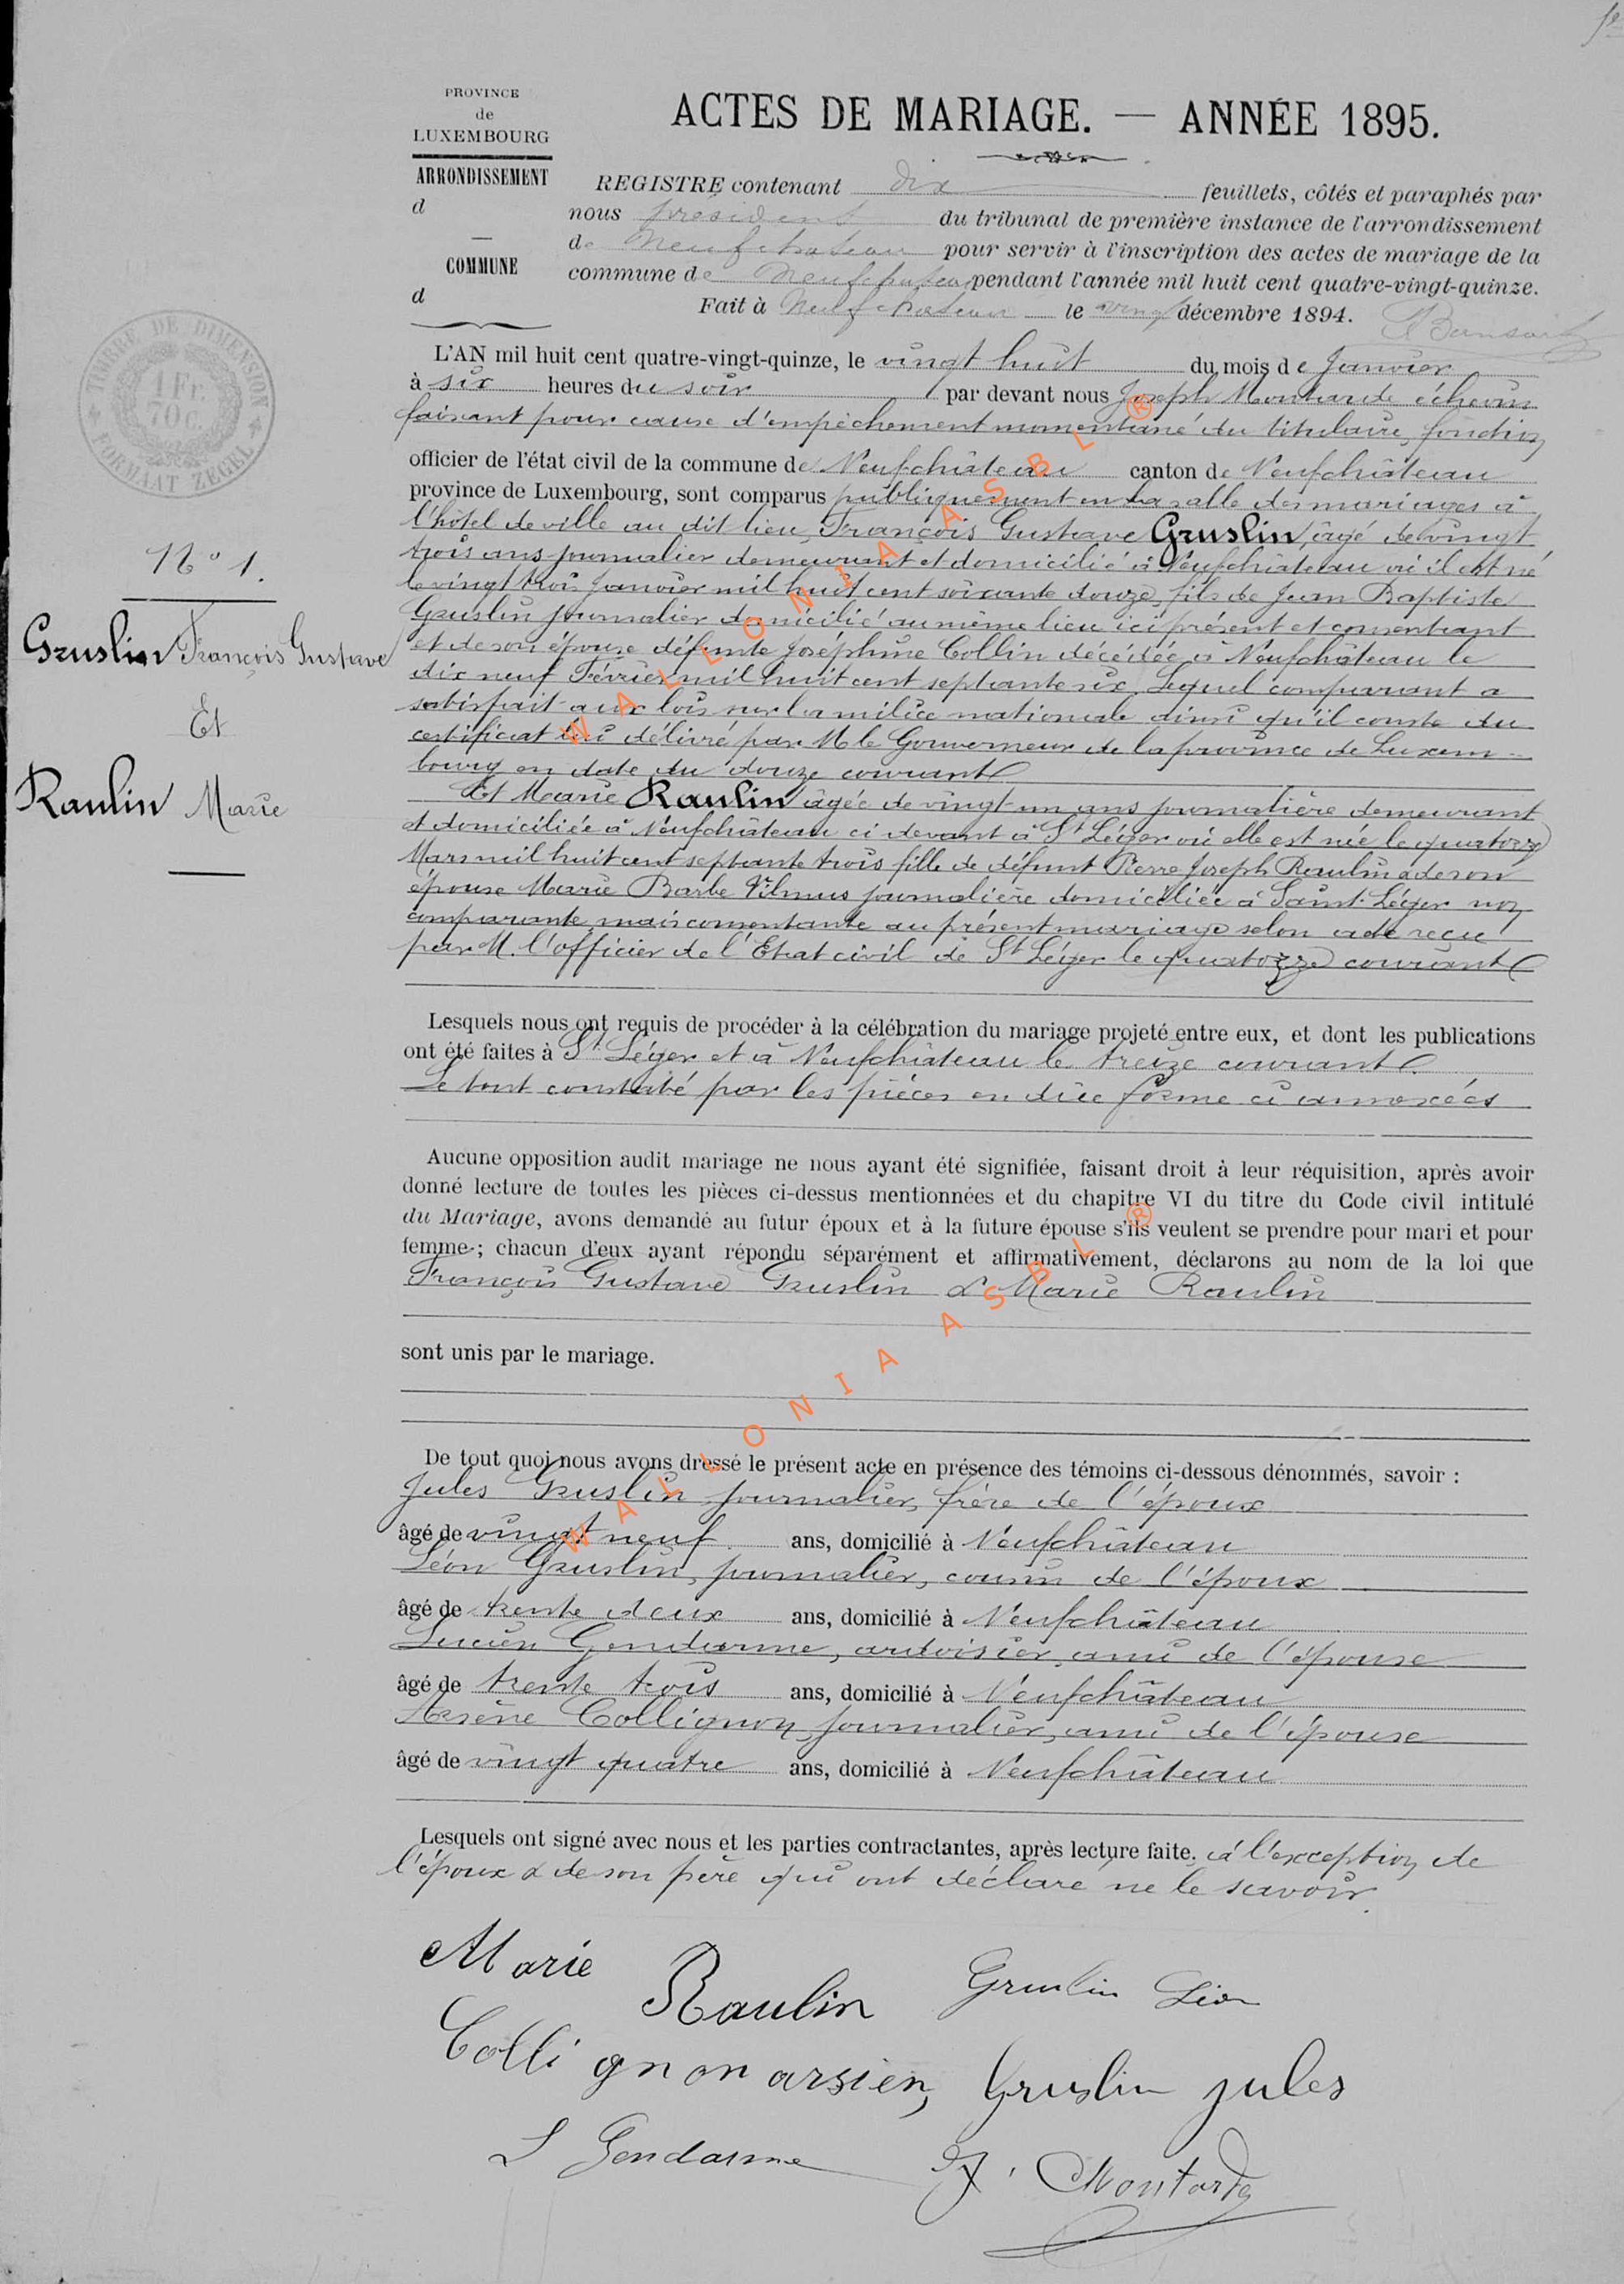 PROVINCE
de
LUXEMBOURG
ARRONDISSEMENT
d
COMMUNE
d
ACTES DE MARIAGE. — ANNÉE 1895.
REGISTRE contenant dix feuillets, côtés et paraphés par
nous président du tribunal de première instance de l'arrondissement
de Neufchateau pour servir à l'inscription des actes de mariage de la
commune de Neufchateau pendant l'année mil huit cent quatre-vingt-quinze.
Fait à Neufchateau le vingt décembre 1894.
TIMBRE DE DIMENSION
1 Fr.
70 C.
FORMAAT ZEGEL
L'AN mil huit cent quatre-vingt-quinze, le vingt huit du mois de Janvier
à six heures du soir par devant nous Joseph Montarde échevin
faisant pour cause d'empêchement momentané du titulaire, fonction
officier de l'état civil de la commune de Neufchâteau canton de Neufchâteau
province de Luxembourg, sont comparus publiquement en la salle des mariages à
l'hôtel de ville au dit lieu, François Gustave Gruslin, âgé de vingt
trois ans journalier demeurant et domicilié à Neufchâteau où il est né
le vingt trois Janvier mil huit cent soixante douze, fils de Jean Baptiste
Gruslin journalier domicilié au même lieu ici présent et consentant
et de son épouse défunte Joséphine Collin décédée à Neufchâteau le
dix neuf Février mil huit cent septante six. Lequel comparant a
satisfait aux lois sur la milice nationale ainsi qu'il conste du
certificat lui délivré par M le Gouverneur de la province de Luxem-
bourg en date du douze courant
Et Marie Raulin âgée de vingt-un ans journalière demeurant
et domiciliée à Neufchâteau ci devant à St Léger où elle est née le quatorze
Mars mil huit cent septante trois fille de défunt Pierre Joseph Raulin & de son
épouse Marie Barbe Vilmus journalière domiciliée à Saint-Léger non
comparante mais consentante au présent mariage selon acte reçu
par M. l'officier de l'Etat civil de St Léger le quatorze courant
N° 1.
Gruslin François Gustave
Et
Raulin Marie
Lesquels nous ont requis de procéder à la célébration du mariage projeté entre eux, et dont les publications
ont été faites à St Léger et à Neufchâteau le treize courant.
Le tout constaté par les pièces en due forme ci annexées
Aucune opposition audit mariage ne nous ayant été signifiée, faisant droit à leur réquisition, après avoir
donné lecture de toutes les pièces ci-dessus mentionnées et du chapitre VI du titre du Code civil intitulé
du Mariage, avons demandé au futur époux et à la future épouse s'ils veulent se prendre pour mari et pour
femme ; chacun d'eux ayant répondu séparément et affirmativement, déclarons au nom de la loi que
François Gustave Gruslin & Marie Raulin
sont unis par le mariage.
De tout quoi nous avons dressé le présent acte en présence des témoins ci-dessous dénommés, savoir :
Jules Gruslin journalier, frère de l'époux
âgé de vingt neuf ans, domicilié à Neufchâteau
Léon Gruslin, journalier, cousin de l'époux
âgé de trente deux ans, domicilié à Neufchâteau
Lucien Gendarme, ardoisier, ami de l'épouse
âgé de trente trois ans, domicilié à Neufchâteau
Arsène Collignon, journalier, ami de l'épouse
âgé de vingt quatre ans, domicilié à Neufchâteau
Lesquels ont signé avec nous et les parties contractantes, après lecture faite, à l'exception de
l'époux & de son père qui ont déclaré ne le savoir.
Marie Raulin Gruslin Léon
Colli gnon arsien Gruslin jules
L Gendarme J. Montarde
WALLONIA ASBL ®
WALLONIA ASBL ®